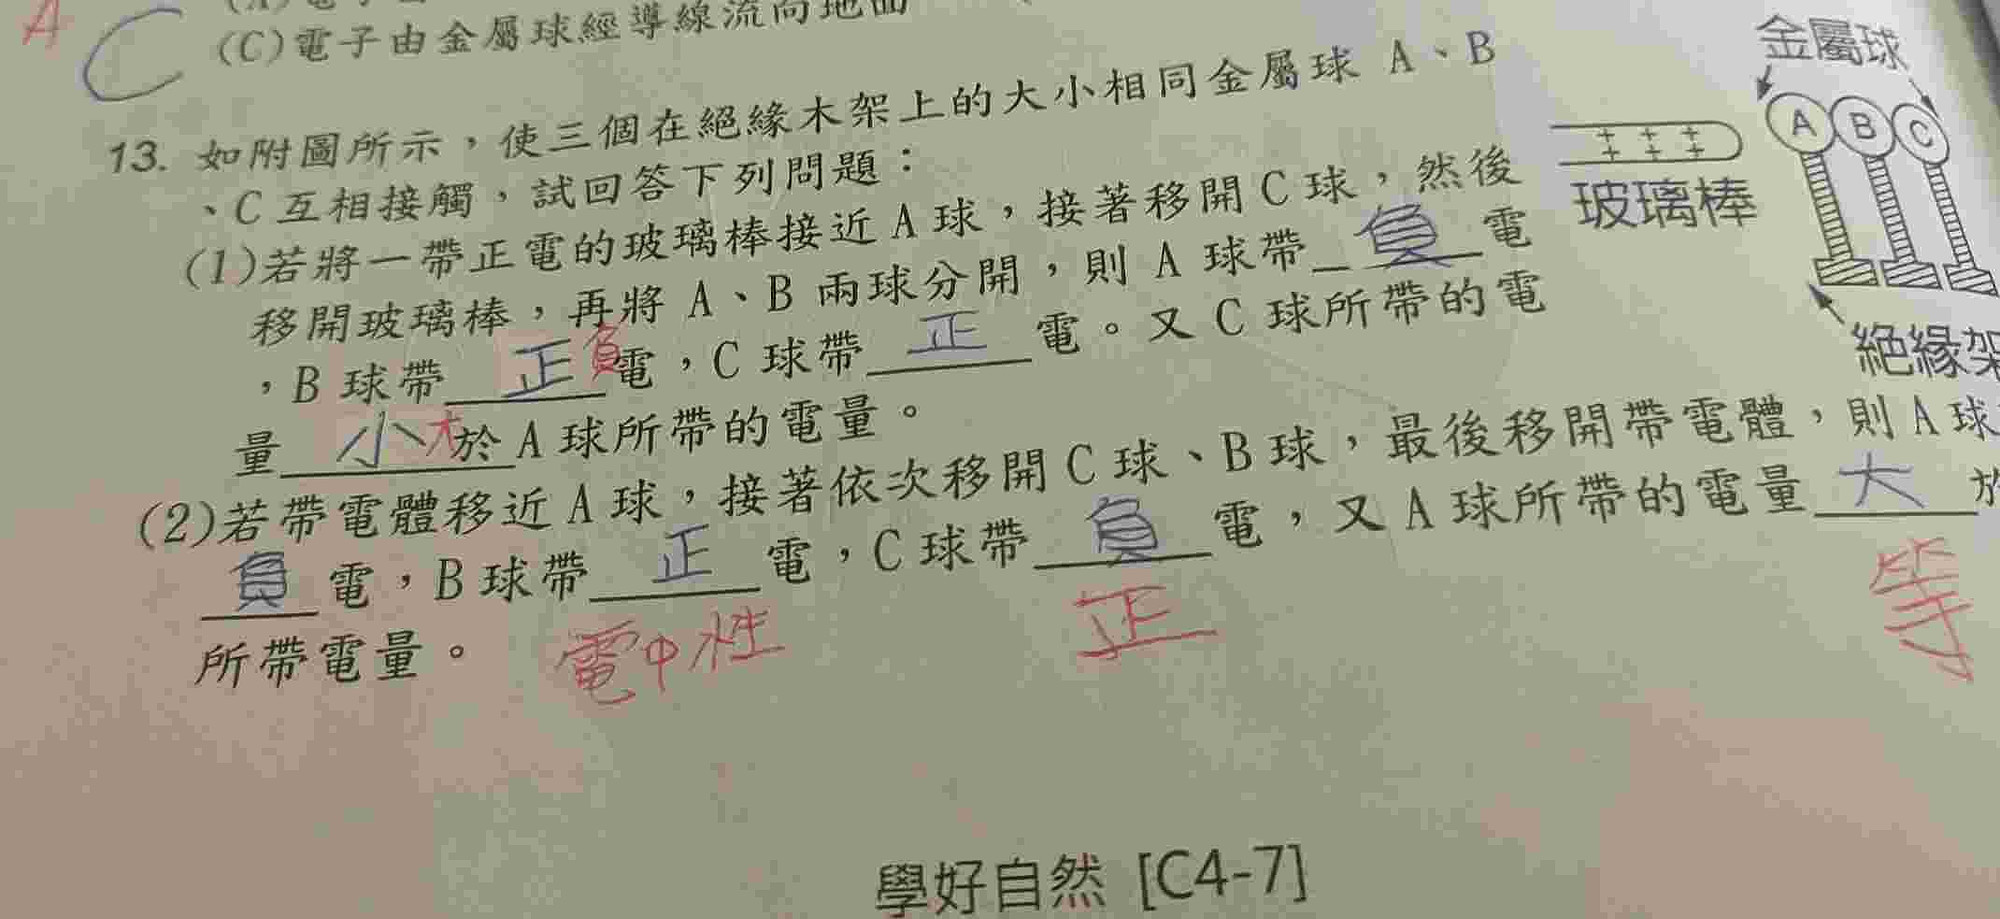 A
(C)電子由金屬球經導線流向地面
C
13. 如附圖所示，使三個在絕緣木架上的大小相同金屬球 A、B
、C互相接觸，試回答下列問題：
(1)若將一帶正電的玻璃棒接近A球，接著移開C球，然後
移開玻璃棒，再將 A、B 兩球分開，則 A 球帶 負 電
，B 球帶 正 負 電，C 球帶 正 電。又 C 球所帶的電
量 小 大 於 A 球所帶的電量。
(2)若帶電體移近A球，接著依次移開C球、B球，最後移開帶電體，則A球
負 電，B球帶 正 電，C球帶 負 電，又A球所帶的電量 大 於
電中性 正 等
所帶電量。
金屬球
A B C
+ + +
+ + +
玻璃棒
絕緣架
學好自然 [C4-7]